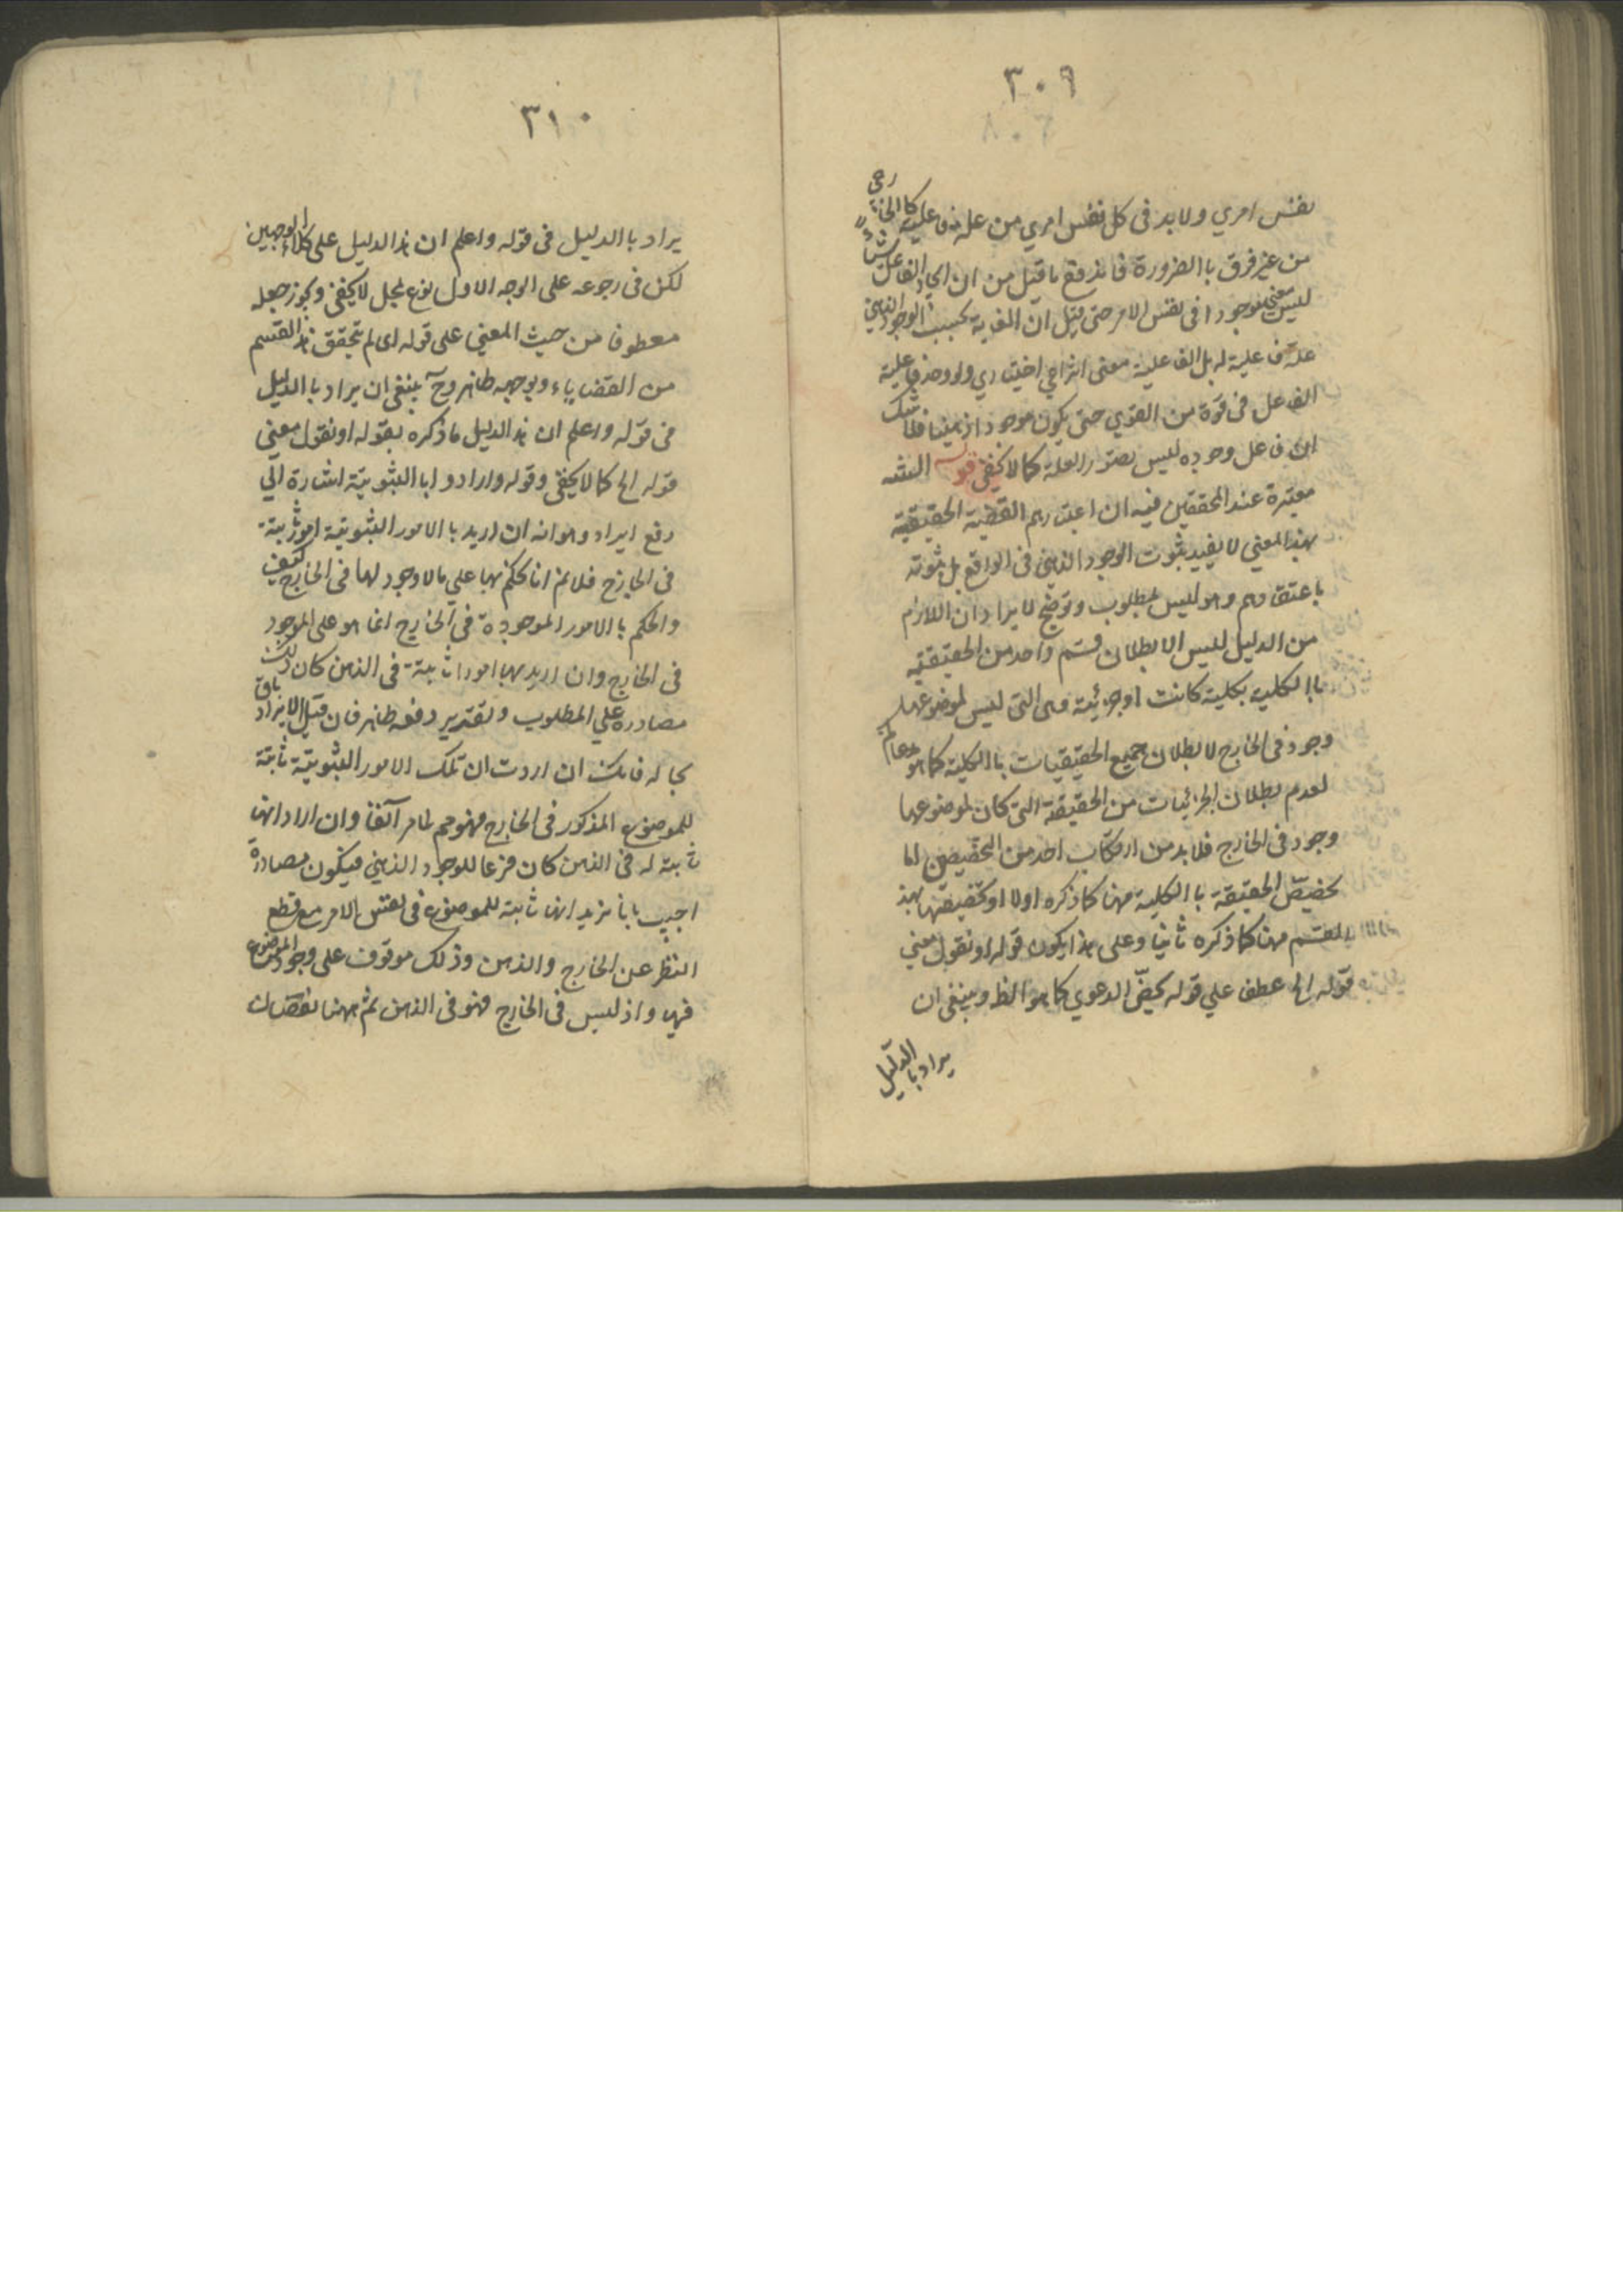 ٣٠٩
نفس امري ولا بد في كل نفس امري من علة فاعلية كا الخارجي
من غير فرق با الضرورة فاندفع ما قيل من ان ايجاد الفاعل
ليس معنى موجودا في نفس الامر حتى قيل ان بسبب الوجود الذهني
علة فاعلية له بل الفاعلية معنى انتزاعي اختياري ولو وجد فاعلية
الفاعل في قوة من القوي حتى يكون موجودا ذهنيا فلا شك
ان فاعل وجوده ليس بصور العلة كما لا يخفى قوله
معتبرة عند المحققين فيه ان اعتبارهم القضية الحقيقية
بهذا المعني لا يفيد بثبوت الوجود الذهني في الواقع بل ثبوته
باعتقادهم وهو ليس بمطلوب وتوضيح الايراد ان اللازم
من الدليل ليس الا بطلان قسم واحد من الحقيقية
با الكلية بكلية كانت او جزئية وهى التي ليس لموضوعها
وجود في الخارج لا بطلان جميع الحقيقيات با الكلية كما هو
لعدم بطلان الجزئيات من الحقيقة التي كان لموضوعها
وجود في الخارج فلا بد من ارتكاب احد من التخصيصين اما
تخصيص الحقيقة با الكلية منها كما ذكره اولا او تخصيصها بهذا
القسم منها كما ذكره ثانيا وعلى هذا يكون قوله او نقول معني
قوله الخ عطف علي قوله الدعوي كما هو الظ وينبغي ان
يراد با الدليل
٣١٠
يراد با الدليل في قوله واعلم ان هذا الدليل على كلا الوجهين
لكن في رجوعه على الوجه الاول نوع لا يخفى ويجوز جعله
معطوفا من حيث المعني على قوله اى لم يتحقق هذا القسم
من القضاياء وتوجيهه ظاهر وح ينبغي ان يراد با الدليل
في قوله واعلم ان هذا الدليل ما ذكره بقوله او نقول معني
قوله الخ كما لا يخفى وقوله وارادوا با الثبوتية اشارة الي
دفع ايراد وهو انه ان اريد با الامور الثبوتية امور ثابتة
في الخارج فلا نم انا نحكم بها علي ما لا وجود لها في الخارج كيف
والحكم با الامور الموجودة في الخارج انما هو على الموجود
في الخارج وان اريد بها امورا ثابتة في الذهن كان ذلك
مصادرة علي المطلوب وتقدير دفعه ظاهر فان قيل الايراد باق
بحاله فانك ان اردت ان تلك الامور الثبوتية ثابتة
للموضوع المذكور في الخارج فهو مم لما مر آنفا وان اراد انها
ثابتة له في الذهن كان فرعا للوجود الذهني فيكون مصادرة
اجيب بانا نريد انها ثابتة للموضوع في نفس الامر مع قطع
النظر عن الخارج والذهن وذلك موقوف على وجود الموضوع
فيها واذ ليس في الخارج فهو في الذهن ثم ههنا نقضان